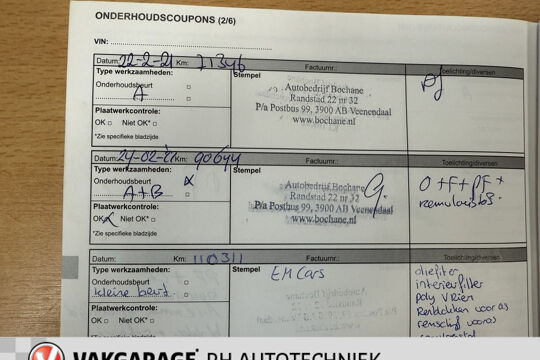 ONDERHOUDSCOUPONS (2/6)
VIN:
Datum: 22-2-21 Km: 71346 Factuurnr.: Toelichting/diversen
Type werkzaamheden: Stempel
Onderhoudsbeurt
A
Autobedrijf Bochane
Randstad 22 nr 32
P/a Postbus 99, 3900 AB Veenendaal
www.bochane.nl
Plaatwerkcontrole:
OK Niet OK*
*Zie specifieke bladzijde
Datum: 24-02-22 Km: 90644 Factuurnr.: Toelichting/diversen
Type werkzaamheden: Stempel
Onderhoudsbeurt
A+B
Autobedrijf Bochane
Randstad 22 nr 32
P/a Postbus 99, 3900 AB Veenendaal
www.bochane.nl
O+F+PF+
Plaatwerkcontrole:
OK Niet OK*
*Zie specifieke bladzijde
Datum: Km: 110311 Factuurnr.: Toelichting/diversen
Type werkzaamheden: Stempel EM Cars
Onderhoudsbeurt
kleine beurt
oliefilter
interieurfilter
Poly V Riem
Remblokken voor as
remschijf vooras
Plaatwerkcontrole:
OK Niet OK*
VAKGARAGE RH AUTOTECHNIEK